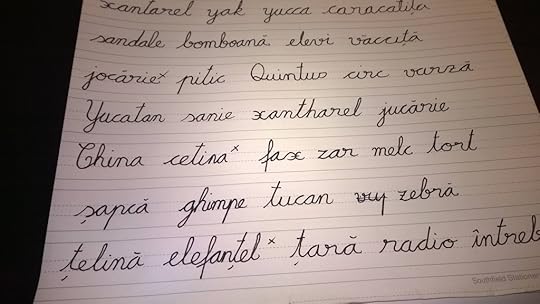 xantarel yak yucca caracatița
sandale bomboană elevi văccuță
jocărie× pitic Quintus circ varză
Yucatan sanie xantharel jucărie
China cetina× fax zar melc tort
șapcă ghimpe tucan vry zebră
țelină elefanțel× țară radio întreb
Southfield Stationer